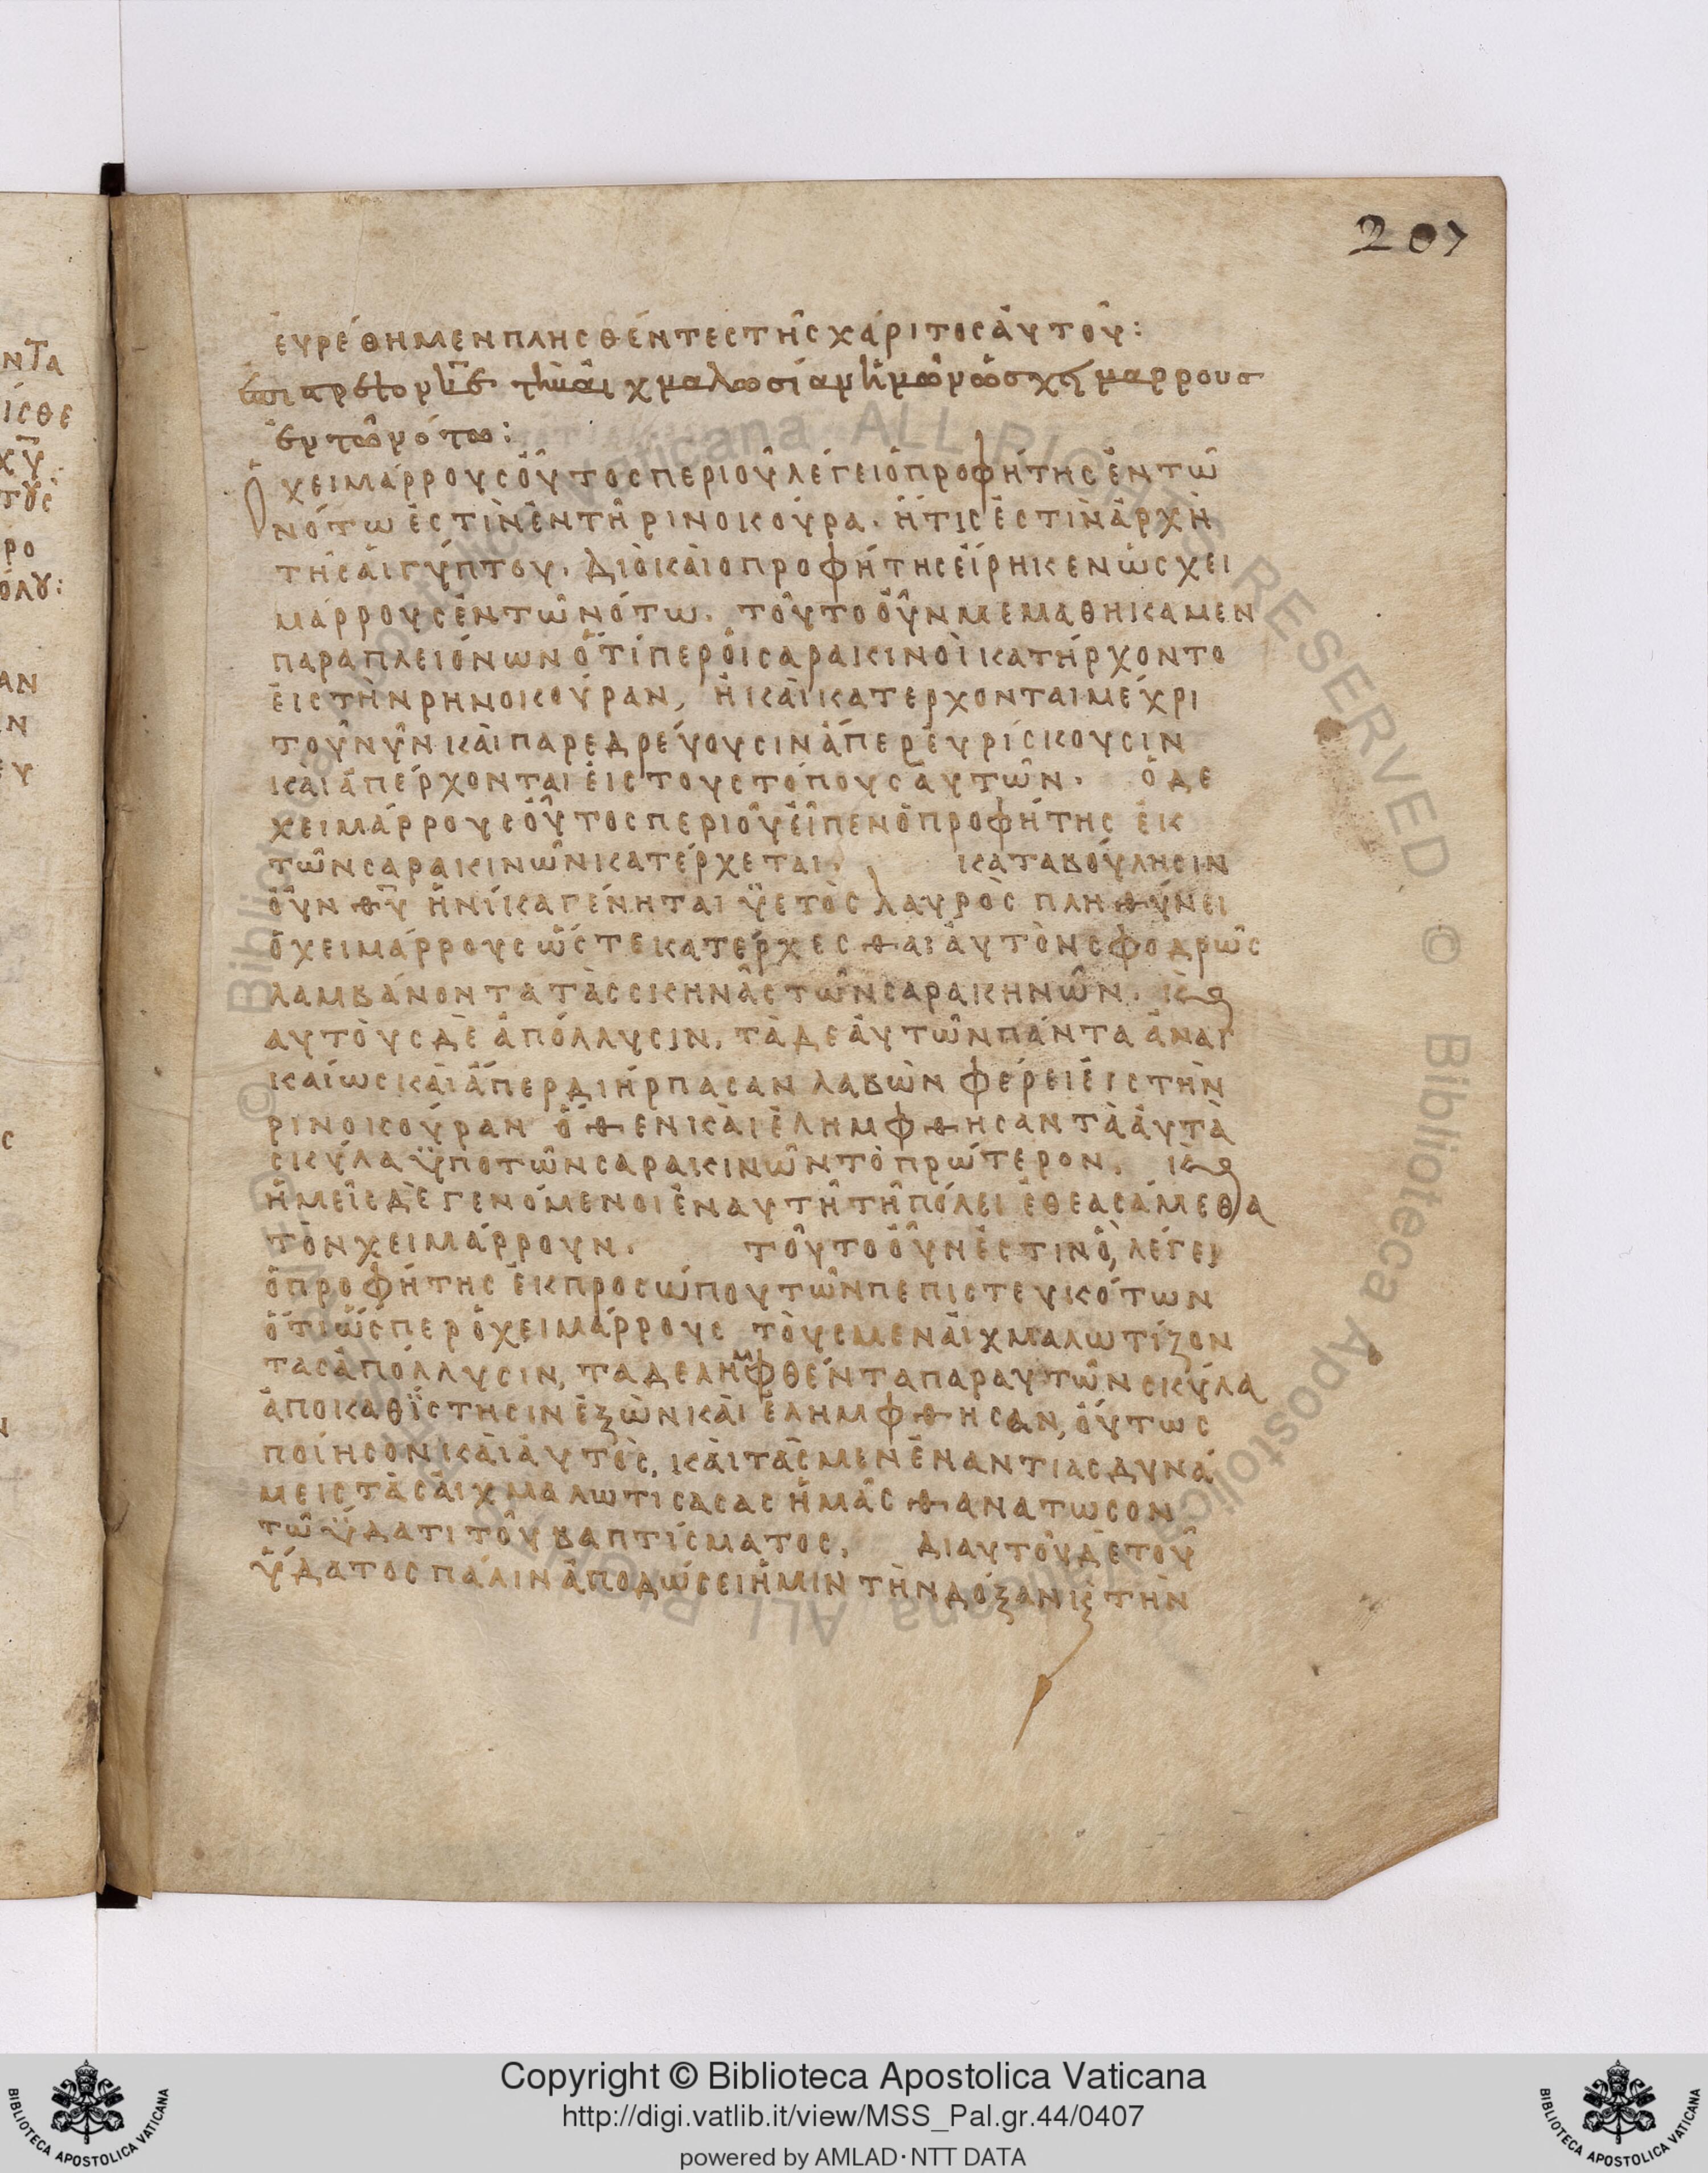 207
εὑρέθημεν πλησθέντες τῆς χάριτος αὐτοῦ:
ἐπίστρεψον κ̅ε̅ τὴν αἰχμαλωσίαν ἡμῶν ὡς χειμάρρους
ἐν τῶ νότω:
Ὁ χειμάρρους οὗτος περὶ οὗ λέγει ὁ προφήτης ἐν τῶ
νότω ἐστὶν ἐν τῆ ρινοκούρα. ἥτις ἐστὶν ἀρχὴ
τῆς αἰγύπτου. διὸ καὶ ο προφήτης εἴρηκεν ὡς χει
μάρρους ἐν τῶ νότω. τοῦτο οὖν μεμαθηκαμεν
παρα πλειόνων ὅτίπερ οἱ σαρακινοὶ κατήρχοντο
εἰς τὴν ρηνοκούραν, ἢ καὶ κατερχονται μέχρι
τοῦ νῦν καὶ παρεδρεύουσιν ἅπερ ευρίσκουσιν
και ἀπέρχονται εἰς τους τόπους αυτῶν. ὁ δε
χειμάρρους οὗτος περὶ οὗ εἶπεν ὁ προφήτης ἐκ
τῶν σαρακινῶν κατέρχεται. κατα βούλησιν
οὖν θ̅υ̅ ἡνίκα γένηται ὑετὸς λαυρὸς πληθύνει
ὁ χειμάρρους ὥστε κατέρχεσθαι ἀυτὸν σφοδρῶς
λαμβάνοντα τὰς σκηνὰς τῶν σαρακηνῶν. κὰι
αυτὸυς δὲ ἀπόλλυσιν. τὰ δε ἀυτῶν πάντα ἀναγ
καίως κὰι ἅπερ διήρπασαν λαβὼν φέρει εἰς τὴν
ρινοκούραν ὅθεν κὰι ἐλήμφθησαν τὰ ἀυτὰ
σκύλα ὑπὸ τῶν σαρακινῶν τὸ πρώτερον. κὰι
ἡμεῖς δὲ γενόμενοι ἐν αυτῆ τῆ πόλει ἐθεασάμεθα
τὸν χειμάρρουν. τοῦτο οὖν ἐστιν ὃ λέγει
ὁ προφήτης ἐκ προσώπου τῶν πεπιστευκότων
ὅτι ὥσπερ ὁ χειμάρρους τὸυς μεν ἀιχμαλωτίζον
τας ἀπόλλυσιν, τα δε λημφθέντα παρ αυτῶν σκύλα
ἀποκαθίστησιν ἐξ ὧν κὰι ἐλημφθησαν, οὕτως
ποίησον κὰι ἀυτὸς, κὰι τὰς μεν ἐναντίας δυνά
μεις τὰς ἀιχμαλωτισασας ἡμᾶς θανατωσον
τῶ ὕδατι τοῦ βαπτίσματος. δι αυτοῦ δὲ τοῦ
ὕδατος πάλιν ἀποδώσει ἡμιν τὴν δόξαν κ̀ τὴν
Copyright © Biblioteca Apostolica Vaticana
http://digi.vatlib.it/view/MSS_Pal.gr.44/0407
powered by AMLAD·NTT DATA